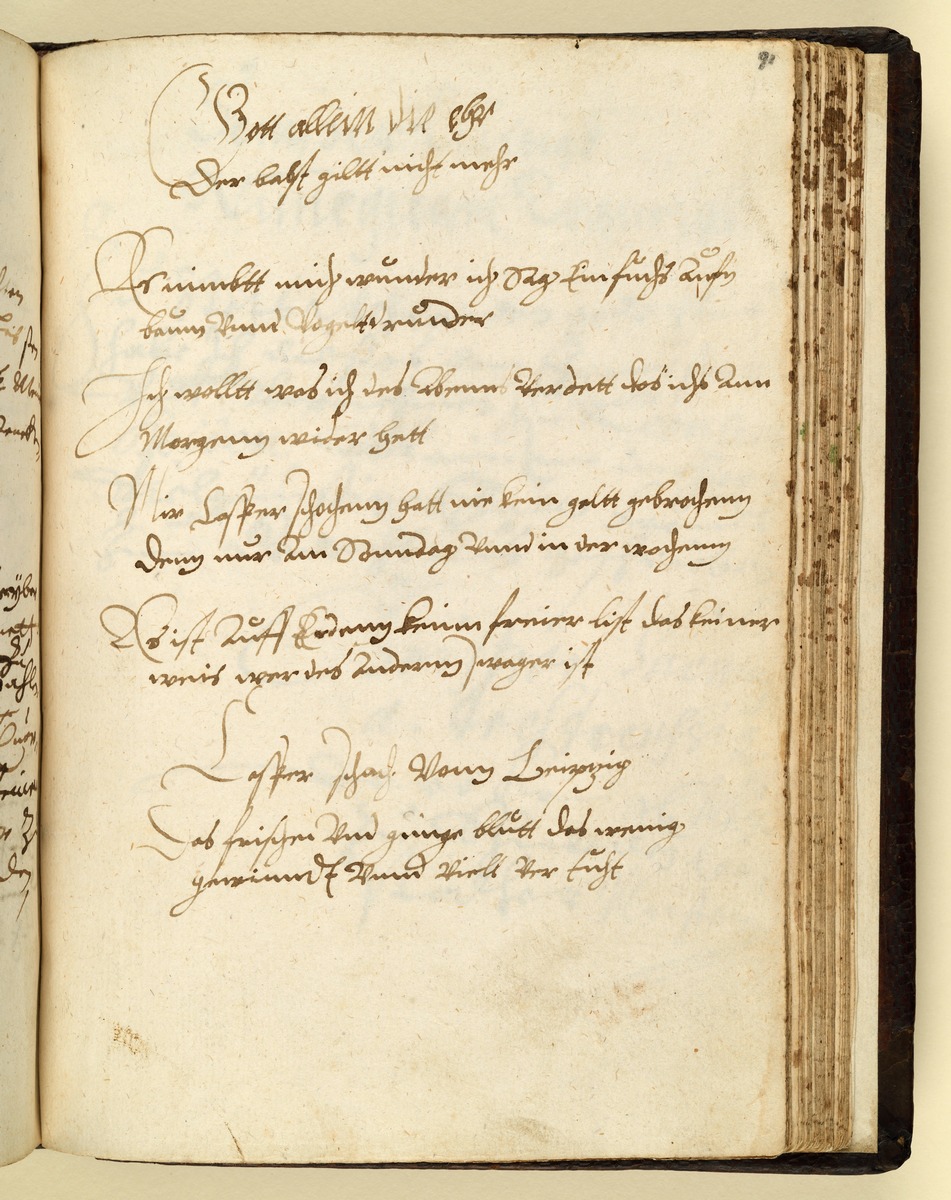 Gott allein die ehr
Der babst giltt nicht mehr
Es nimbtt mich wunder ich sag Ein fuchs auffn
baum Vnnd Vogelt drunder
Ich wolltt was ich des Abents Verdett das ichs Am
Morgenn wider hett
Mir Casper schochenn hatt nie kein geltt gebrochenn
denn nur am Sonndag Vnnd in der wochenn
Es ist Auff Erdenn keinn freier list das keiner
weis wer des Andernn schwager ist
Casper schoch Vonn Leipzig
Das frischei Vnd gunge blutt das wenig
gewinndt Vnnd Vielt Ver